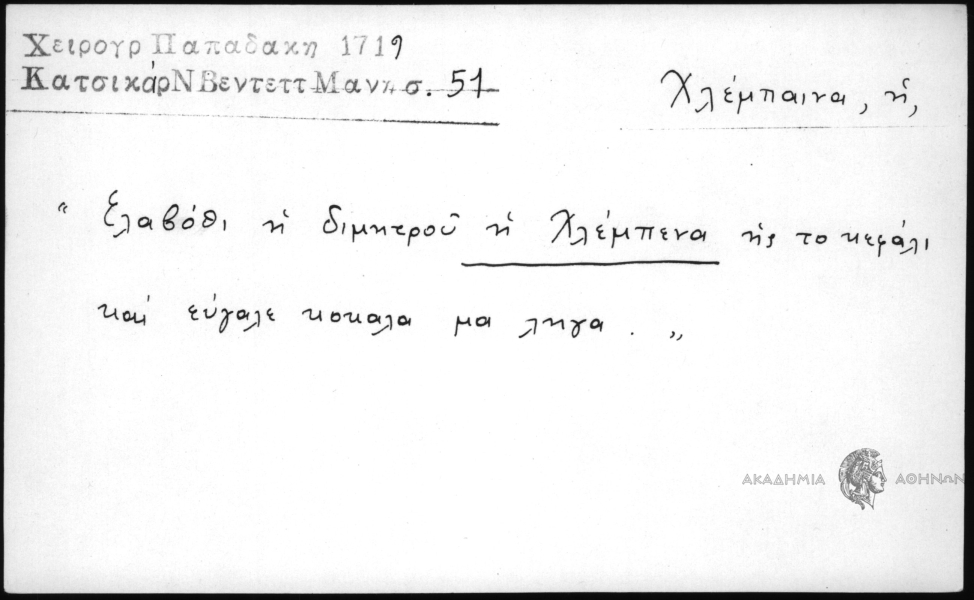 Χειρουρ Παπαδακη 1719
ΚατσικάρΝ Βεντεττ Μανη σ. 51
Χλέμπαινα, ἡ,
“ Ελαβόθι ἡ διμητροῦ ἡ Χλέμπενα ἠς το κεφάλι
καί εύγαλε κοκαλα μα ληγα . „
ΑΚΑΔΗΜΙΑ ΑΘΗΝΩΝ